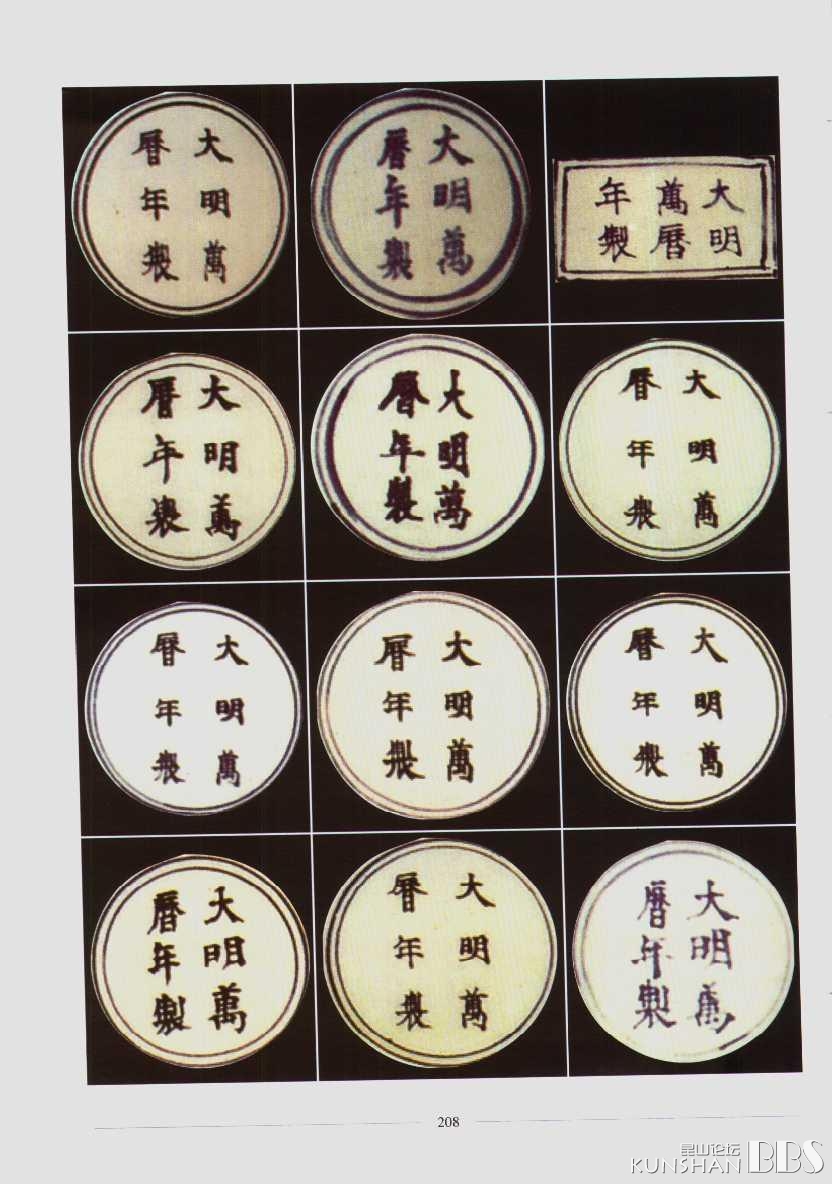 大明萬
曆年製
大明萬
曆年製
大明
萬曆
年製
大明萬
曆年製
大明萬
曆年製
大明萬
曆年製
大明萬
曆年製
大明萬
曆年製
大明萬
曆年製
大明萬
曆年製
大明萬
曆年製
大明萬
曆年製
208
昆山论坛
KUNSHAN BBS